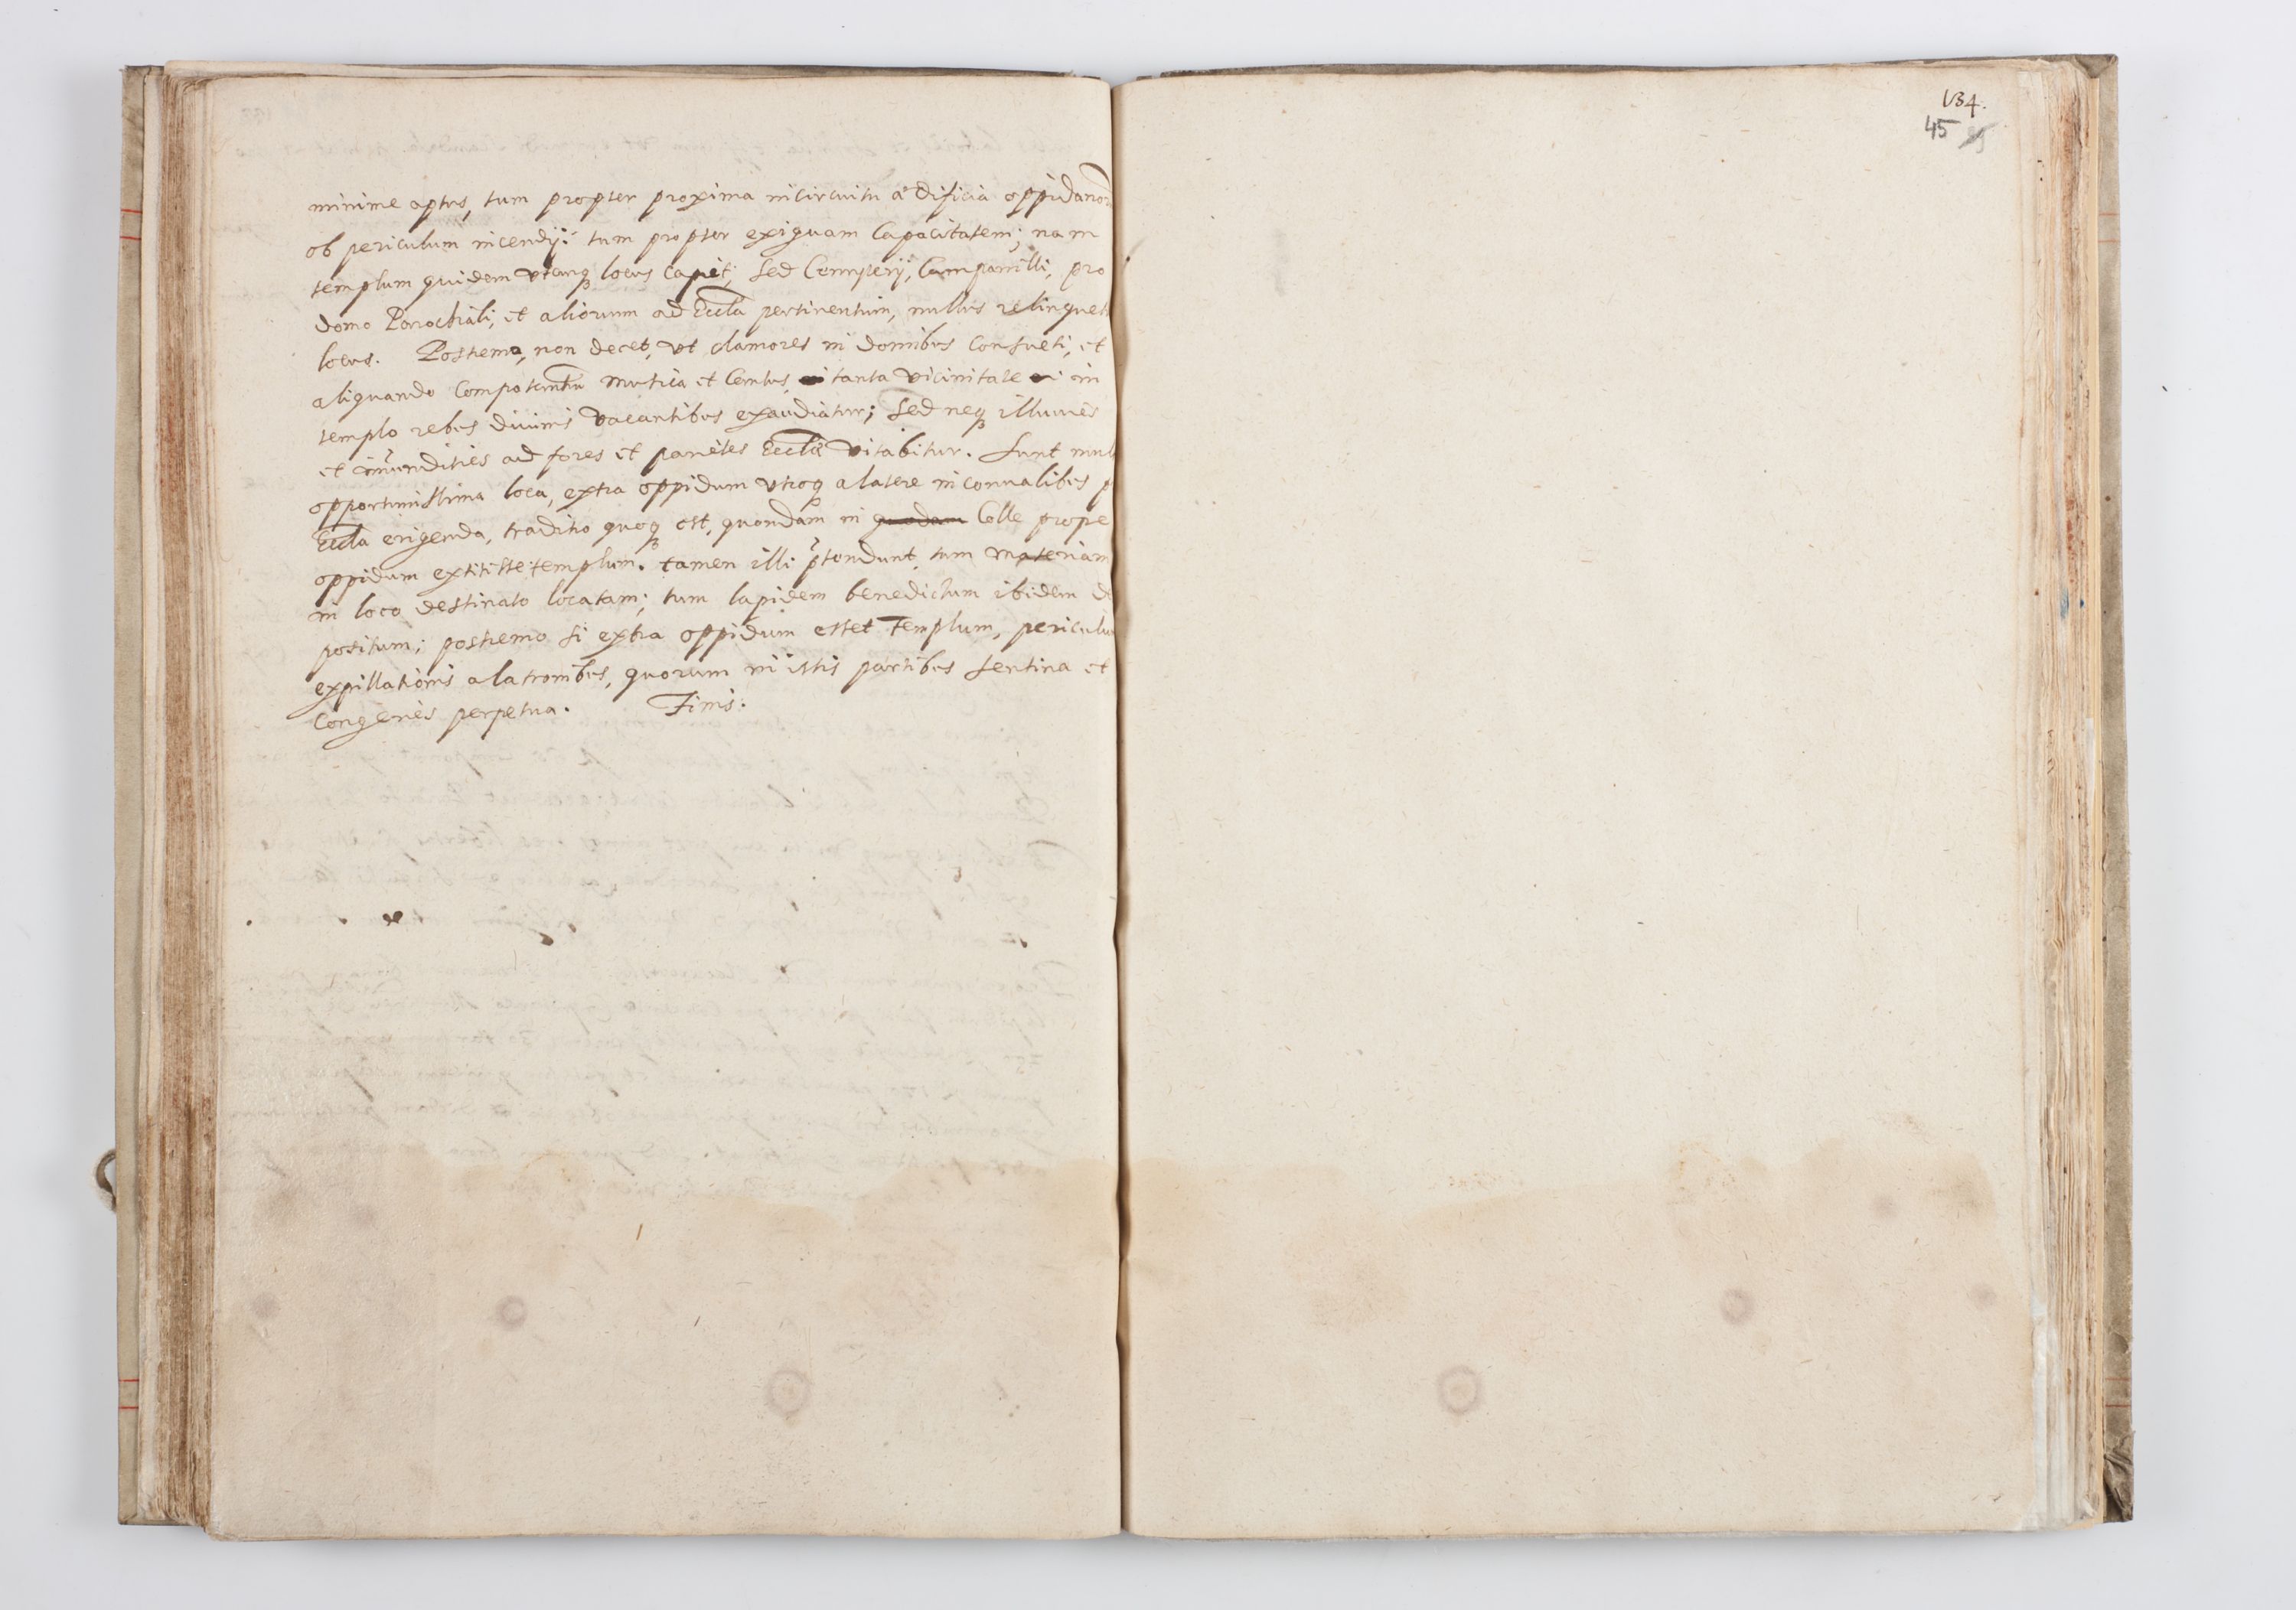 minime aptus, tum propter proxima in circuitu ædificia oppidanorũ
ob periculum incendij: tum propter exiguam Capacitatem; nam
templum quidem vtcunq locus capiet; sed Cemiterij, Campanilli, pro
domo Parochiali, et aliorum ad Eccla pertinentium, nullus relinquet
locus. Postremo, non decet, vt clamores in domibus consueti, et
aliquando Compotantiũ musica et Cantus, tanta vicinitate in
templo rebus diuinis vacantibus exaudiatur; sed neq illuuies
et imũndities ad fores et parietes Ecclæ vitabitur. Sunt mul
opportunissima loca, extra oppidum vtroq a latere in conualibus p
Eccla erigenda, traditio quoq est, quondam in quodam Colle prope
oppidum extitisse templum. tamen illi p̃tendunt, tum materiam
in loco destinato locatam; tum lapidem benedictum ibidem de
positum; postremo si extra oppidum esset Templum, periculum
expillationis a latronibus, quorum in istis partibus sentina et
Congeries perpetua. Finis.
134.
45